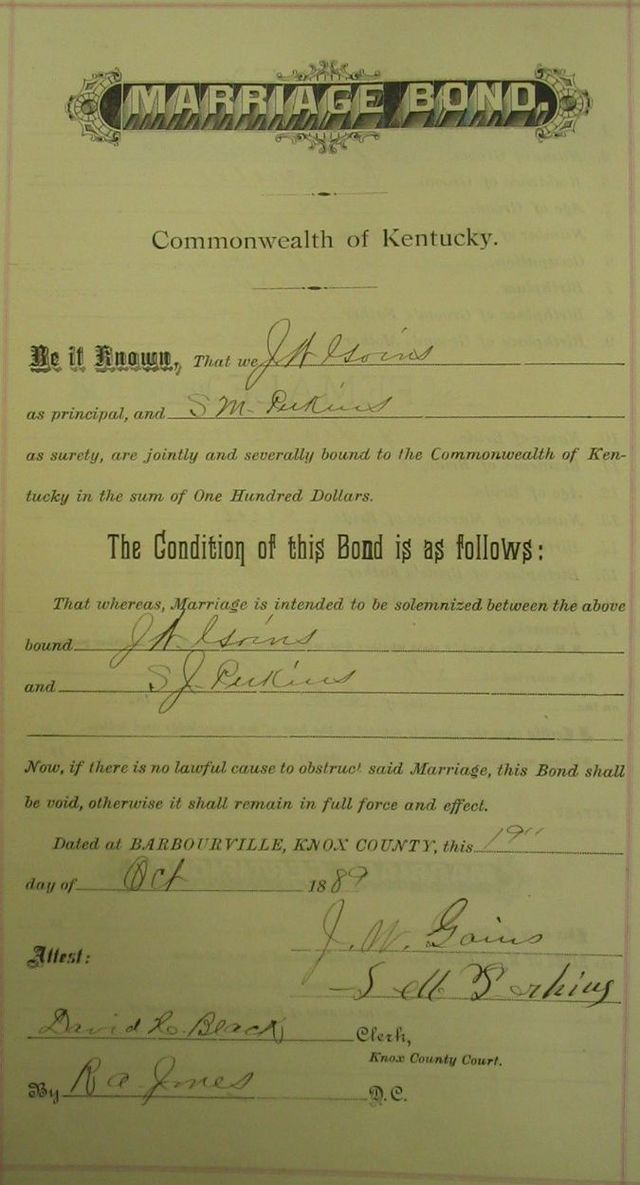 MARRIAGE BOND.
Commonwealth of Kentucky.
Be it Known, That we J W Goins
as principal, and S M Perkins
as surety, are jointly and severally bound to the Commonwealth of Ken-
tucky in the sum of One Hundred Dollars.
The Condition of this Bond is as follows:
That whereas, Marriage is intended to be solemnized between the above
bound J W Goins
and S J Perkins
Now, if there is no lawful cause to obstruct said Marriage, this Bond shall
be void, otherwise it shall remain in full force and effect.
Dated at BARBOURVILLE, KNOX COUNTY, this 19"
day of Oct 1889
J. W. Goins
Attest:
S M Perkins
David Black Clerk,
Knox County Court.
By R A Jones D.C.